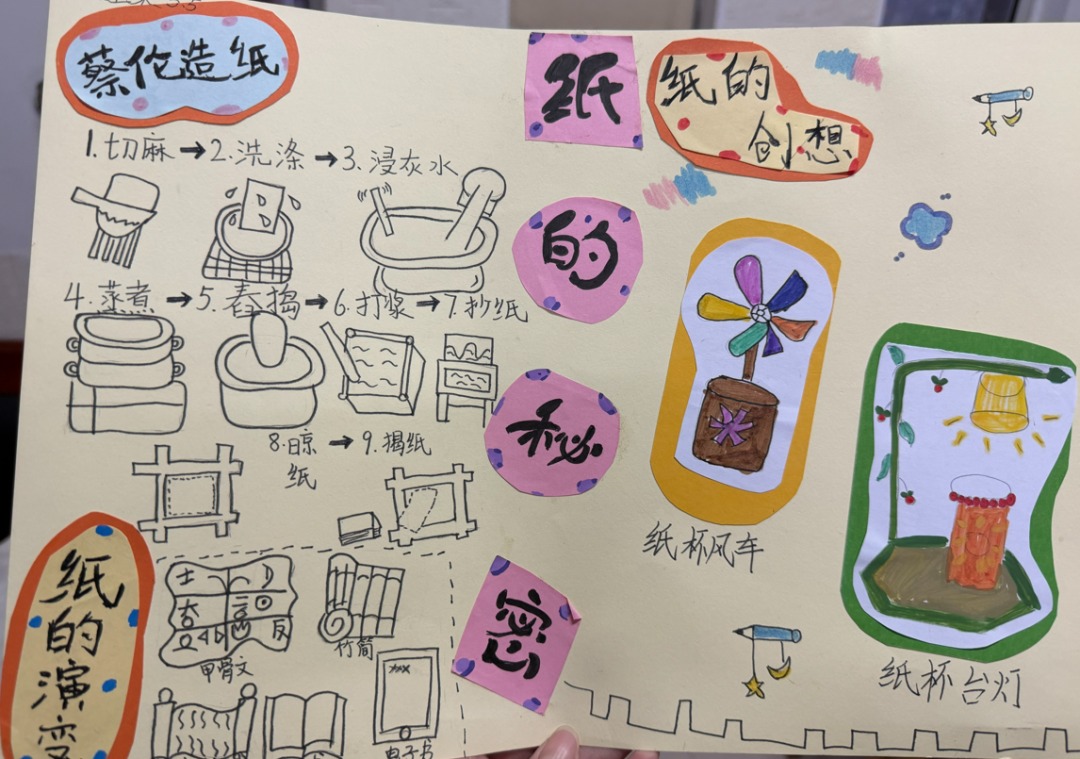 蔡伦造纸
1.切麻→2.洗涤→3.浸灰水
4.蒸煮→5.舂捣→6.打浆→7.抄纸
8.晾纸→9.揭纸
纸的演变
甲骨文
竹简
电子书
纸的秘密
纸的创想
纸杯风车
纸杯台灯